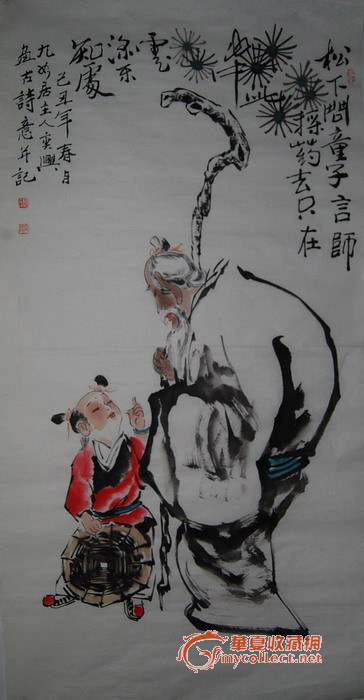 松下問童子言師
採药去只在
此
山中
雲
深不
知處
己丑年春月
九如居主人奕興
古詩意并記
華夏收藏網
mycollect.net